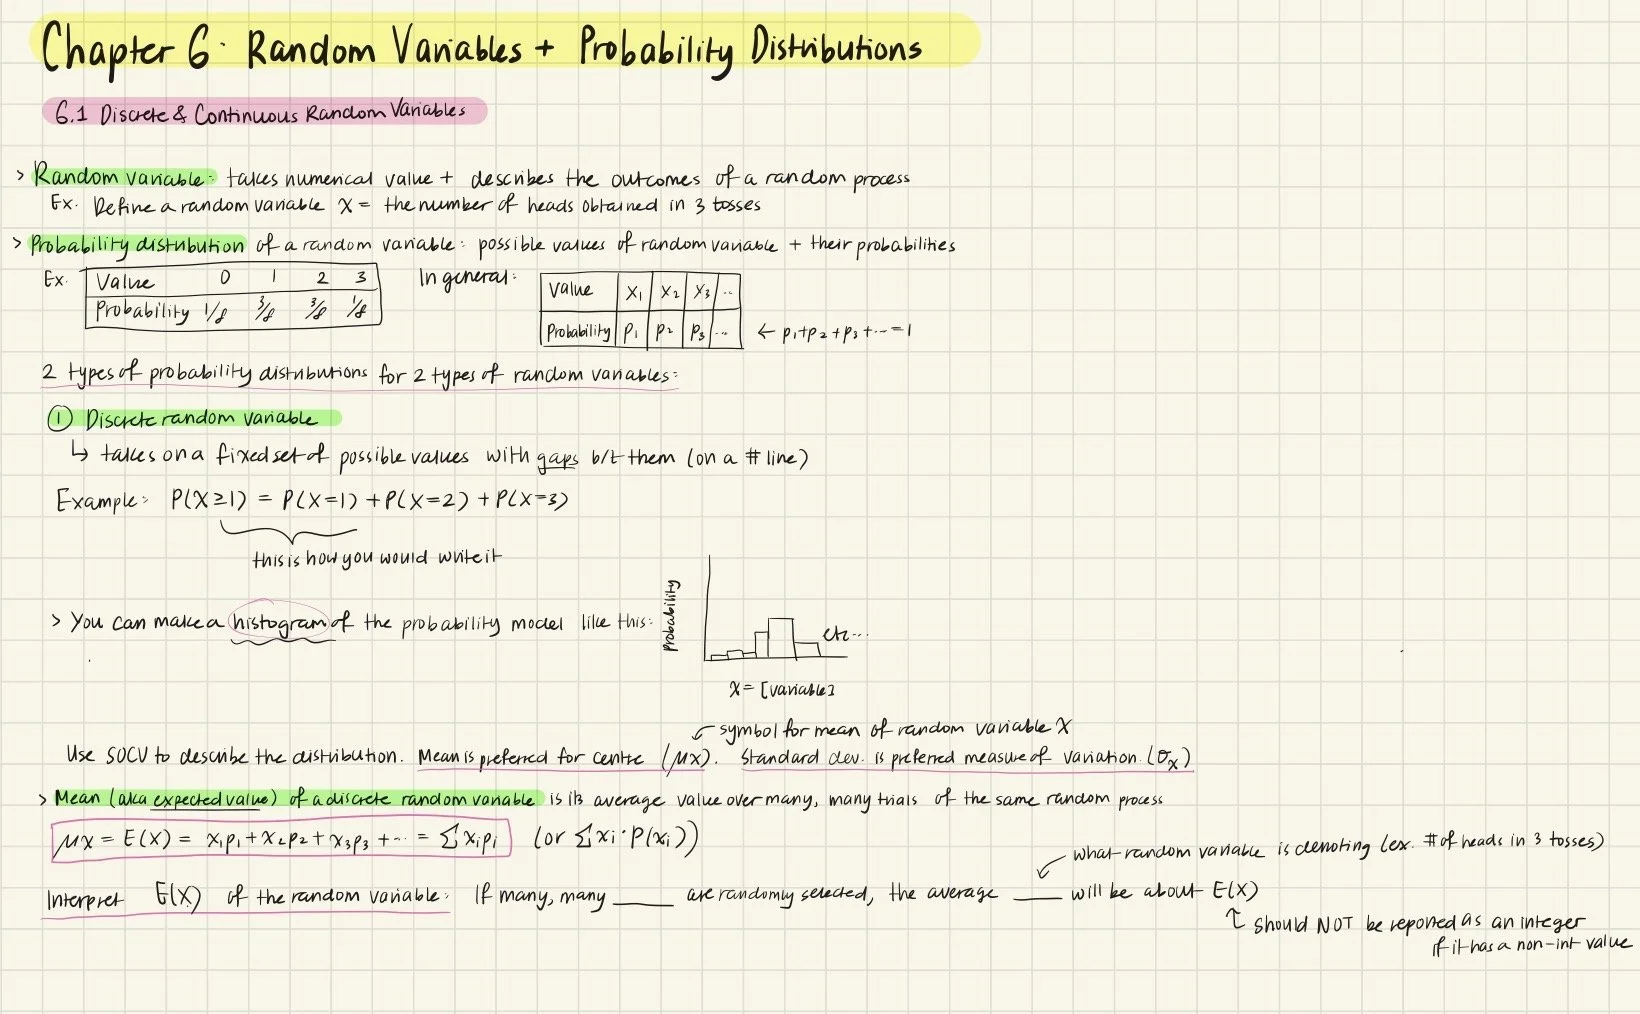 Chapter 6: Random Variables + Probability Distributions
6.1 Discrete & Continuous Random Variables
> Random variable: takes numerical value + describes the outcomes of a random process
Ex. Define a random variable X = the number of heads obtained in 3 tosses
> Probability distribution of a random variable: possible values of random variable + their probabilities
Ex. Value 0 1 2 3
Probability 1/8 3/8 3/8 1/8
In general:
Value X₁ X₂ X₃ ...
Probability P₁ P₂ P₃ ... ← p₁+p₂+p₃+...=1
2 types of probability distributions for 2 types of random variables:
① Discrete random variable
↳ takes on a fixed set of possible values with gaps b/t them (on a # line)
Example: P(X≥1) = P(X=1) + P(X=2) + P(X=3)
this is how you would write it
> You can make a histogram of the probability model like this:
Probability
etc...
X = [variable]
symbol for mean of random variable X
Use SOCV to describe the distribution. Mean is preferred for centre (μx). Standard dev. is preferred measure of variation. (σx)
> Mean (aka expected value) of a discrete random variable is its average value over many, many trials of the same random process
μx = E(X) = x₁p₁ + x₂p₂ + x₃p₃ + ... = Σxᵢpᵢ (or Σxᵢ·P(xᵢ))
what random variable is denoting (ex. # of heads in 3 tosses)
Interpret E(X) of the random variable: If many, many ____ are randomly selected, the average ____ will be about E(X)
should NOT be reported as an integer
if it has a non-int value